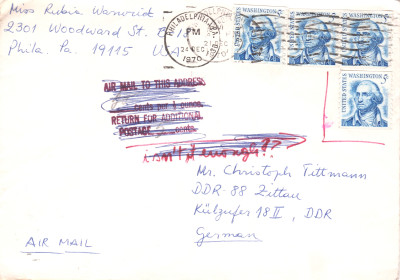 Miss Rubie Warwrid
2301 Woodward St.
Phila. Pa. 19115 USA
PHILADELPHIA, PA.
PM
24 DEC
1970
WASHINGTON 5¢
UNITED STATES
WASHINGTON 5¢
UNITED STATES
WASHINGTON 5¢
WASHINGTON 5¢
UNITED STATES
AIR MAIL TO THIS ADDRESS
cents per ½ ounce.
RETURN FOR ADDITIONAL
POSTAGE cents.
isn't it enough??
Mr. Christoph Tittmann
DDR-88 Zittau
Külzufer 18 II, DDR
German
AIR MAIL